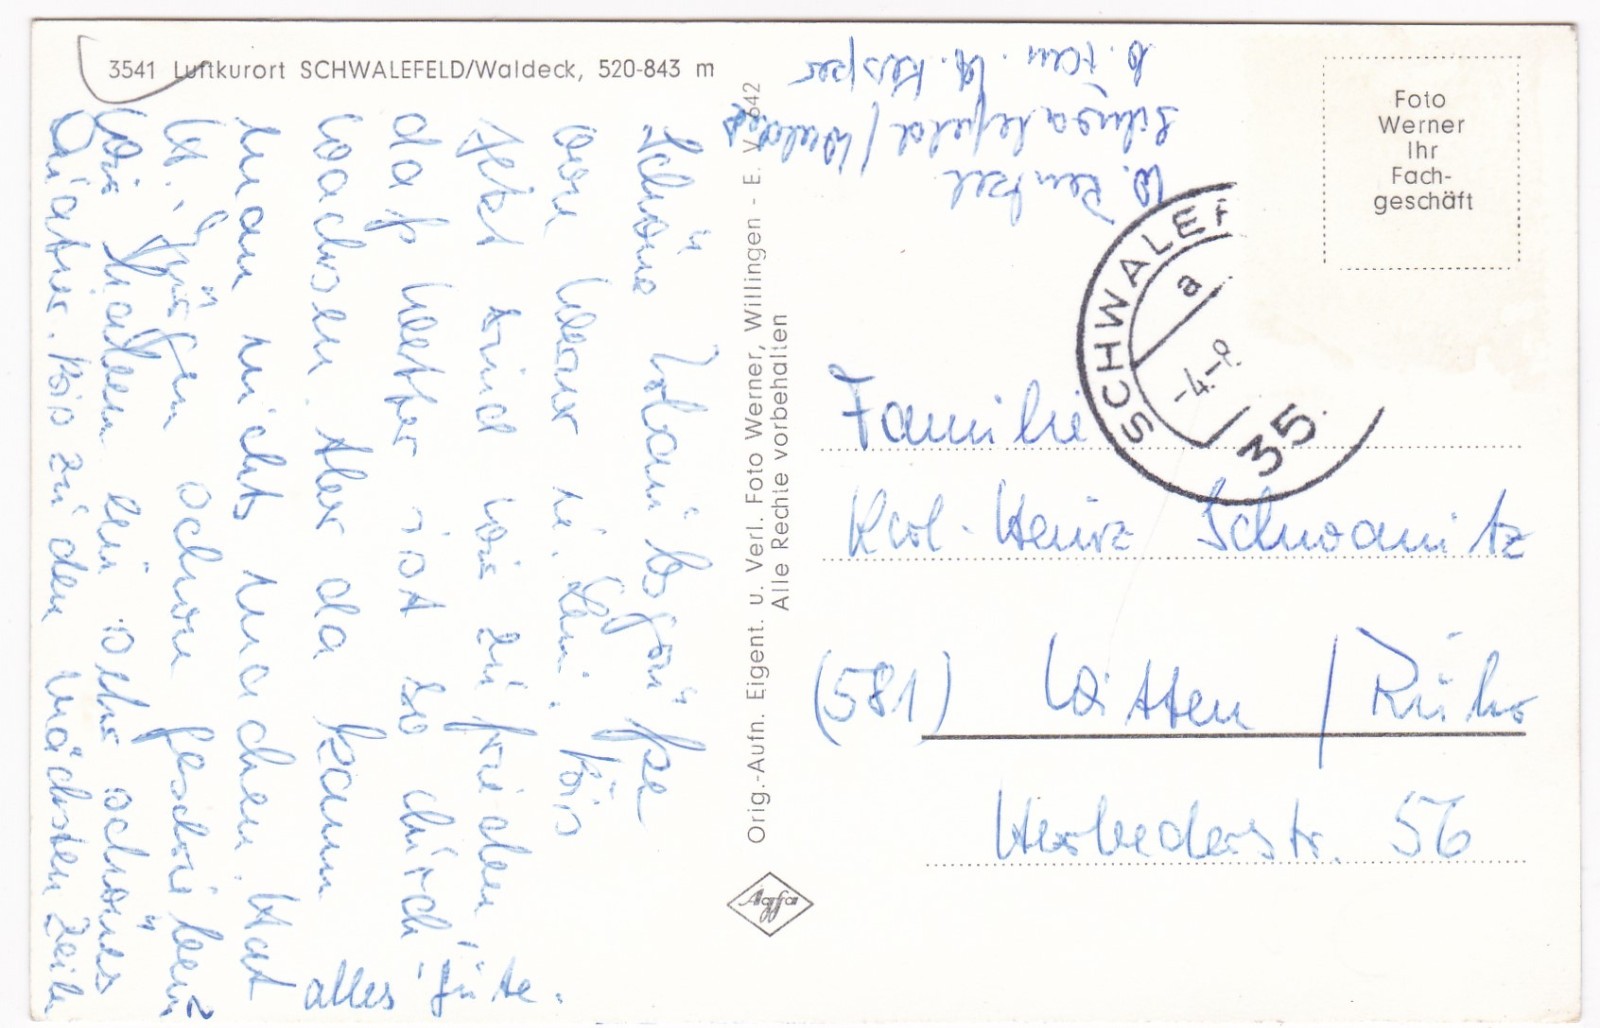 3541 Luftkurort SCHWALEFELD/Waldeck, 520-843 m
Schöne Urlaubsgrüße
von Werner u. Leni. Bis
jetzt sind wir zufrieden,
daß Wetter ist so durch
wachsen. Aber da kann
man nichts machen. Hat
U. Jürgen schon geschrieben?
Wir haben ein sehr schönes
Quatier. Bis zu den nächsten Zeilen
alles gute.
Orig.-Aufn. Eigent. u. Verl. Foto Werner, Willingen - E. V. 642
Alle Rechte vorbehalten
Agfa
W. Rentzel
Schwalefeld/Waldeck
b. Fam. A. Kesper
Foto
Werner
Ihr
Fach-
geschäft
SCHWALEF
a
-4.-9.
35
Familie
Karl-Heinz Schwanitz
(581) Witten / Ruhr
Herbederstr. 56